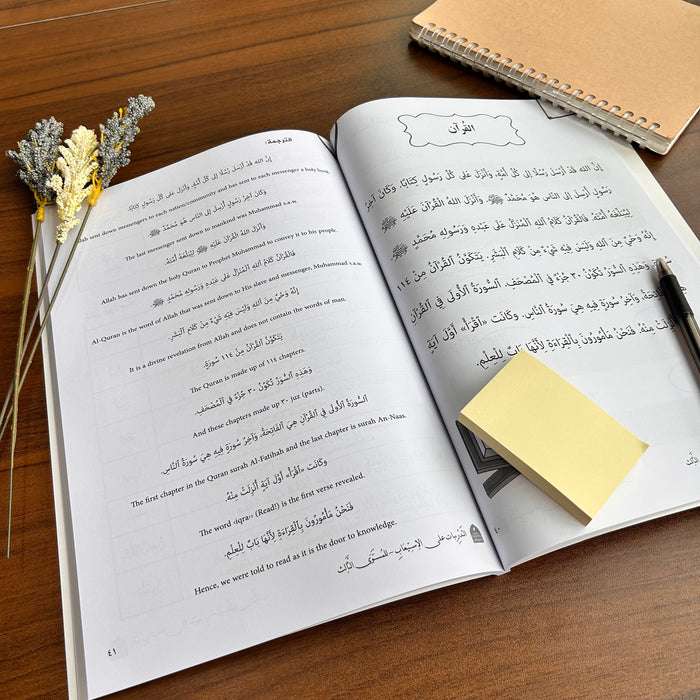 القُرآن
إِنَّ اللهَ قَدْ أَرْسَلَ رُسُلًا إِلَى كُلِّ أُمَّةٍ، وَأَنْزَلَ عَلَى كُلِّ رَسُولٍ كِتَابًا. وَكَانَ آخِرُ
رَسُولٍ أُرْسِلَ إِلَى النَّاسِ هُوَ مُحَمَّدٌ ﷺ، وَأَنْزَلَ اللهُ القُرْآنَ عَلَيْهِ ﷺ
لِيُبَلِّغَهُ أُمَّتَهُ. فَالقُرْآنُ كَلَامُ اللهِ المُنَزَّلُ عَلَى عَبْدِهِ وَرَسُولِهِ مُحَمَّدٍ ﷺ
إِنَّهُ وَحْيٌ مِنَ اللهِ وَلَيْسَ فِيهِ شَيْءٌ مِنْ كَلَامِ البَشَرِ. يَتَكَوَّنُ القُرْآنُ مِنْ ١١٤
وَهَذِهِ السُّوَرُ تُكَوِّنُ ٣٠ جُزْءً فِي المُصْحَفِ. السُّورَةُ الأُولَى فِي القُرْآنِ
الفَاتِحَةُ، وَآخِرُ سُورَةٍ فِيهِ هِيَ سُورَةُ النَّاسِ. وَكَانَتْ «اقْرَأْ» أَوَّلَ آيَةٍ
أُنْزِلَتْ مِنْهُ. فَنَحْنُ مَأْمُورُونَ بِالقِرَاءَةِ لِأَنَّهَا بَابٌ لِلْعِلْمِ.
٤٠
الترجمة:
إِنَّ اللهَ قَدْ أَرْسَلَ رُسُلًا إِلَى كُلِّ أُمَّةٍ، وَأَنْزَلَ عَلَى كُلِّ رَسُولٍ كِتَابًا.
Allah sent down messengers to each nation/community and has sent to each messenger a holy book.
وَكَانَ آخِرُ رَسُولٍ أُرْسِلَ إِلَى النَّاسِ هُوَ مُحَمَّدٌ ﷺ
The last messenger sent down to mankind was Muhammad s.a.w
وَأَنْزَلَ اللهُ القُرْآنَ عَلَيْهِ ﷺ لِيُبَلِّغَهُ أُمَّتَهُ.
Allah has sent down the holy Quran to Prophet Muhammad so convey it to his people,
فَالقُرْآنُ كَلَامُ اللهِ المُنَزَّلُ عَلَى عَبْدِهِ وَرَسُولِهِ مُحَمَّدٍ ﷺ
Al-Quran is the word of Allah that was sent down to His slave and messenger, Muhammad s.a.w
إِنَّهُ وَحْيٌ مِنَ اللهِ وَلَيْسَ فِيهِ شَيْءٌ مِنْ كَلَامِ البَشَرِ.
It is a divine revelation from Allah and does not contain the words of man.
يَتَكَوَّنُ القُرْآنُ مِنْ ١١٤ سُورَةٍ.
The Quran is made up of ١١٤ chapters.
وَهَذِهِ السُّوَرُ تُكَوِّنُ ٣٠ جُزْءً فِي المُصْحَفِ.
And these chapters made up ٣٠ juz (parts).
السُّورَةُ الأُولَى فِي القُرْآنِ هِيَ الفَاتِحَةُ، وَآخِرُ سُورَةٍ فِيهِ هِيَ سُورَةُ النَّاسِ.
The first chapter in the Quran surah Al-Fatihah and the last chapter is surah An-Naas.
وَكَانَتْ «اقْرَأْ» أَوَّلَ آيَةٍ أُنْزِلَتْ مِنْهُ.
The word ‹iqra›› (Read!) is the first verse revealed.
فَنَحْنُ مَأْمُورُونَ بِالقِرَاءَةِ لِأَنَّهَا بَابٌ لِلْعِلْمِ.
Hence, we were told to read as it is the door to knowledge.
التَّدْرِيبَات عَلَى الِاسْتِيعَاب – المُسْتَوَى الثَّالِث
٤١